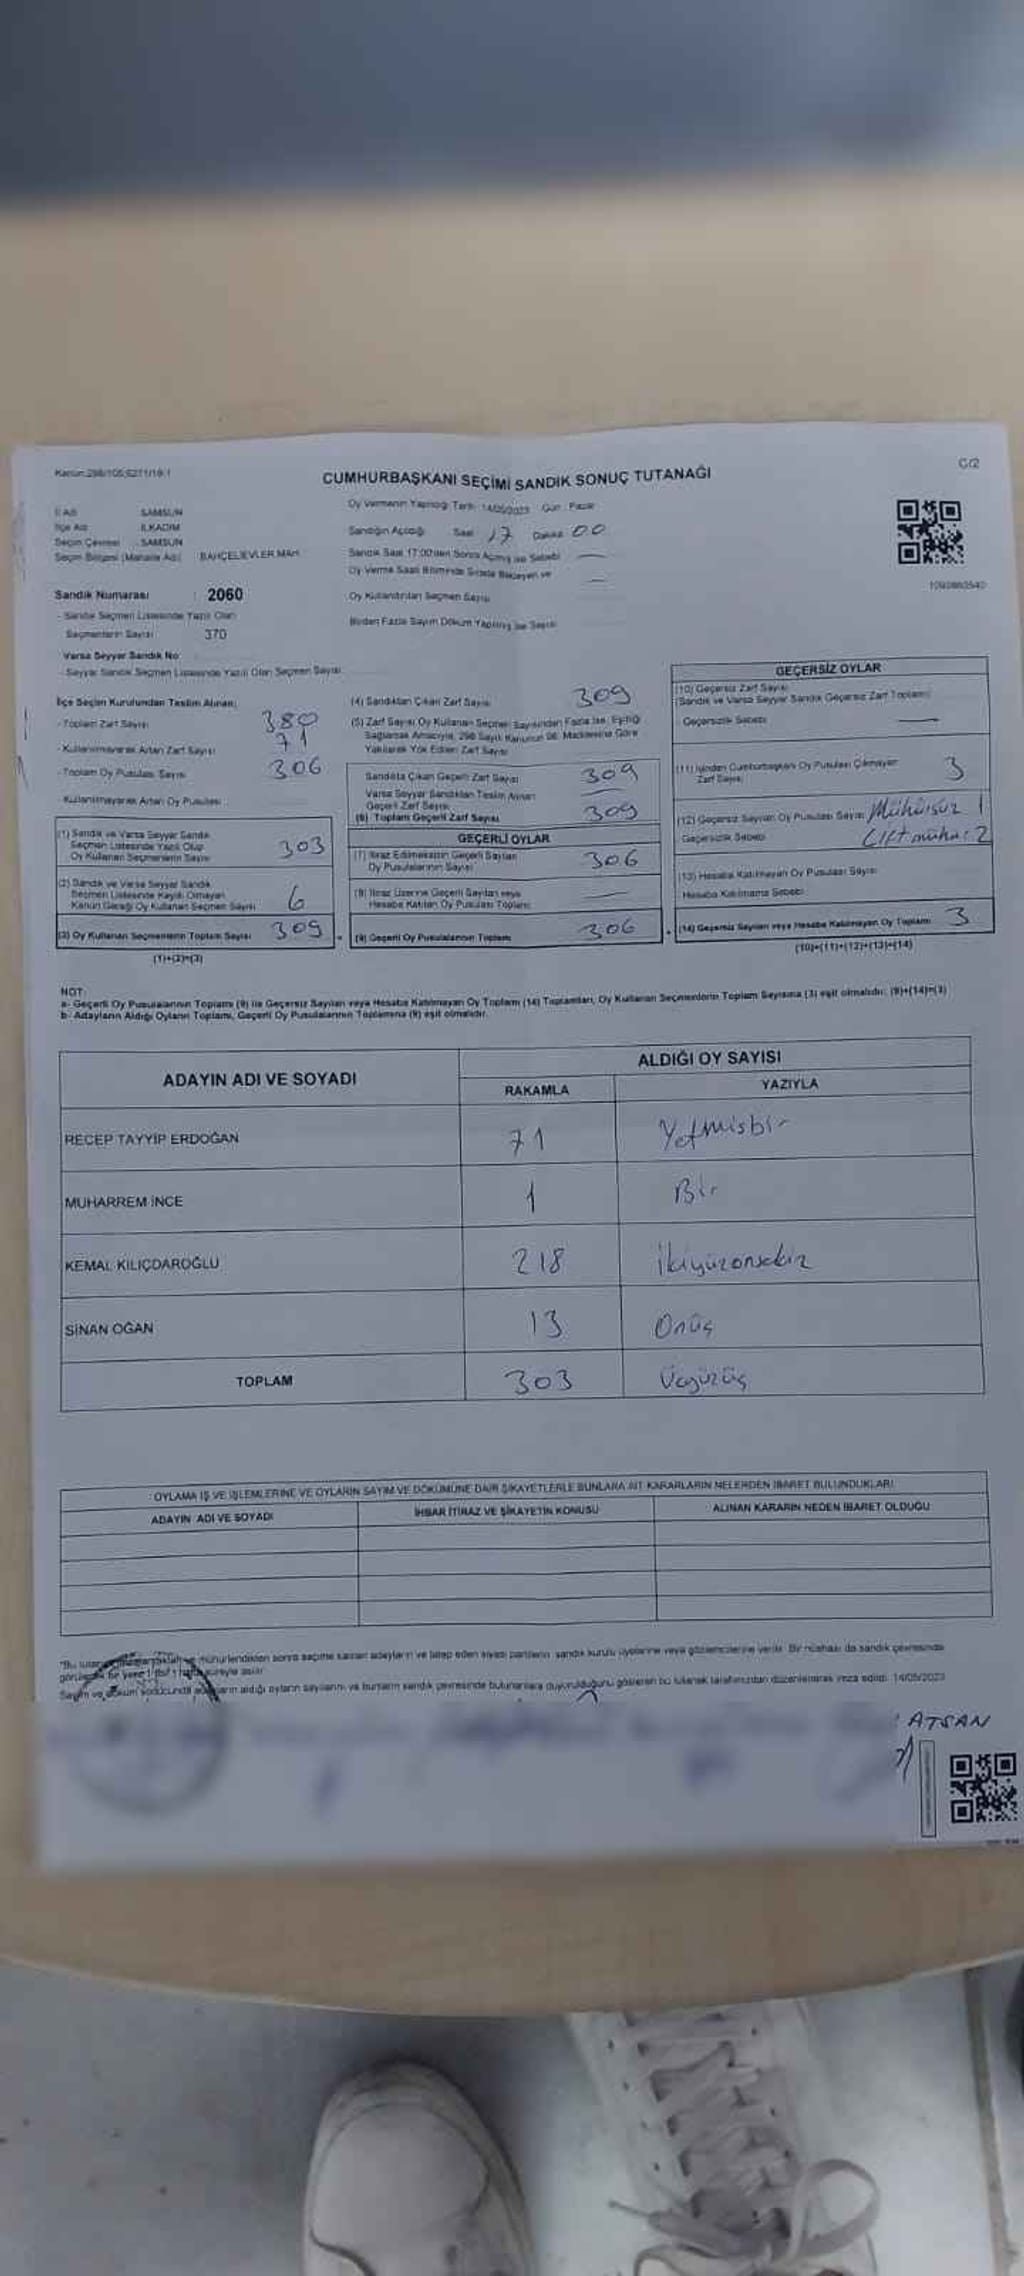 Kanun:298/105;6271/19;1
C/2
CUMHURBAŞKANI SEÇİMİ SANDIK SONUÇ TUTANAĞI
İl Adı SAMSUN
İlçe Adı İLKADIM
Seçim Çevresi : SAMSUN
Seçim Bölgesi (Mahalle Adı) BAHÇELİEVLER MAH.
Sandık Numarası : 2060
- Sandık Seçmen Listesinde Yazılı Olan
Seçmenlerin Sayısı 370
Varsa Seyyar Sandık No
- Seyyar Sandık Seçmen Listesinde Yazılı Olan Seçmen Sayısı
Oy Vermenin Yapıldığı Tarih 14/05/2023 Gün : Pazar
Sandığın Açıldığı Saat 17 Dakika 00
Sandık Saat 17:00'den Sonra Açılmış ise Sebebi —
Oy Verme Saati Bitiminde Sırada Bekleyen ve —
Oy Kullandırılan Seçmen Sayısı
Birden Fazla Sayım Döküm Yapılmış ise Sayısı
1092860540
İlçe Seçim Kurulundan Teslim Alınan;
- Toplam Zarf Sayısı 380
- Kullanılmayarak Artan Zarf Sayısı 71
- Toplam Oy Pusulası Sayısı 306
- Kullanılmayarak Artan Oy Pusulası
(1) Sandık ve Varsa Seyyar Sandık
Seçmen Listesinde Yazılı Olup
Oy Kullanan Seçmenlerin Sayısı 303
(2) Sandık ve Varsa Seyyar Sandık
Seçmen Listesinde Kayıtlı Olmayan
Kanun Gereği Oy Kullanan Seçmen Sayısı 6
(3) Oy Kullanan Seçmenlerin Toplam Sayısı 309
(1)+(2)=(3)
(4) Sandıktan Çıkan Zarf Sayısı 309
(5) Zarf Sayısı Oy Kullanan Seçmen Sayısından Fazla ise, Eşitliği
Sağlamak Amacıyla, 298 Sayılı Kanunun 98. Maddesine Göre
Yakılarak Yok Edilen Zarf Sayısı
Sandıkta Çıkan Geçerli Zarf Sayısı 309
Varsa Seyyar Sandıktan Teslim Alınan —
Geçerli Zarf Sayısı
(6) Toplam Geçerli Zarf Sayısı 309
GEÇERLİ OYLAR
(7) İtiraz Edilmeksizin Geçerli Sayılan
Oy Pusulalarının Sayısı 306
(8) İtiraz Üzerine Geçerli Sayılan veya
Hesaba Katılan Oy Pusulası Toplamı —
(9) Geçerli Oy Pusulalarının Toplamı 306
GEÇERSİZ OYLAR
(10) Geçersiz Zarf Sayısı
(Sandık ve Varsa Seyyar Sandık Geçersiz Zarf Toplamı)
Geçersizlik Sebebi —
(11) İçinden Cumhurbaşkanı Oy Pusulası Çıkmayan
Zarf Sayısı 3
(12) Geçersiz Sayılan Oy Pusulası Sayısı Mühürsüz 1
Geçersizlik Sebebi Çift mühür 2
(13) Hesaba Katılmayan Oy Pusulası Sayısı
Hesaba Katılmama Sebebi
(14) Geçersiz Sayılan veya Hesaba Katılmayan Oy Toplamı 3
(10)+(11)+(12)+(13)=(14)
NOT:
a- Geçerli Oy Pusulalarının Toplamı (9) ile Geçersiz Sayılan veya Hesaba Katılmayan Oy Toplamı (14) Toplamları, Oy Kullanan Seçmenlerin Toplam Sayısına (3) eşit olmalıdır. (9)+(14)=(3)
b- Adayların Aldığı Oyların Toplamı, Geçerli Oy Pusulalarının Toplamına (9) eşit olmalıdır.
ADAYIN ADI VE SOYADI
ALDIĞI OY SAYISI
RAKAMLA YAZIYLA
RECEP TAYYİP ERDOĞAN 71 Yetmişbir
MUHARREM İNCE 1 Bir
KEMAL KILIÇDAROĞLU 218 İkiyüzonsekiz
SİNAN OĞAN 13 Onüç
TOPLAM 303 Üçyüzüç
OYLAMA İŞ VE İŞLEMLERİNE VE OYLARIN SAYIM VE DÖKÜMÜNE DAİR ŞİKAYETLERLE BUNLARA AİT KARARLARIN NELERDEN İBARET BULUNDUKLARI
ADAYIN ADI VE SOYADI İHBAR İTİRAZ VE ŞİKAYETİN KONUSU ALINAN KARARIN NEDEN İBARET OLDUĞU
*Bu mühürlendikten sonra seçime katılan adayların ve talep eden siyasi partilerin sandık kurulu üyelerine veya gözlemcilerine verilir. Bir nüshası da sandık çevresinde
bir yere 1 hafta süreyle asılır.
Sayım ve döküm sonucunda adayların aldığı oyların sayılarını ve bunların sandık çevresinde bulunanlara duyurulduğunu gösteren bu tutanak tarafımızdan düzenlenerek imza edildi. 14/05/2023
ATSAN